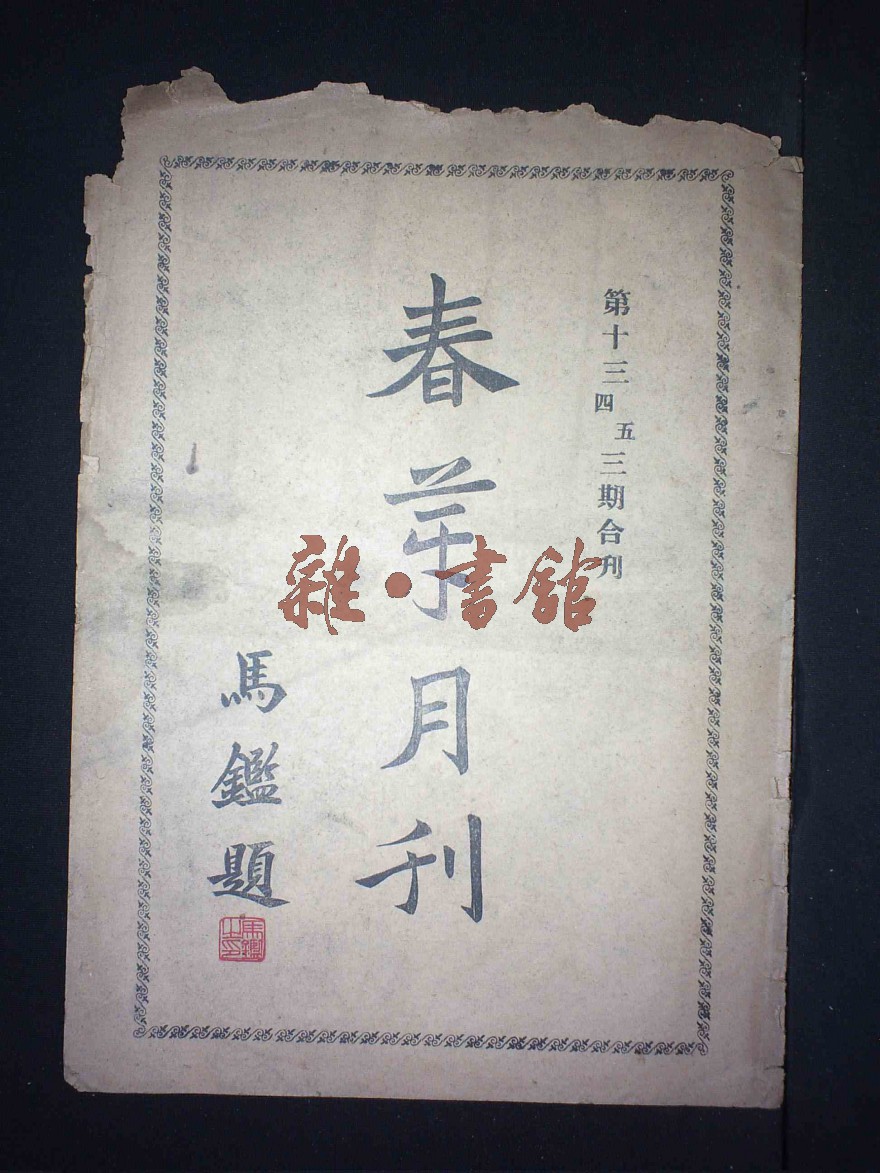 第十三四五三期合刊
春芽月刊
馬鑑題
馬鑑之印
雜·書館